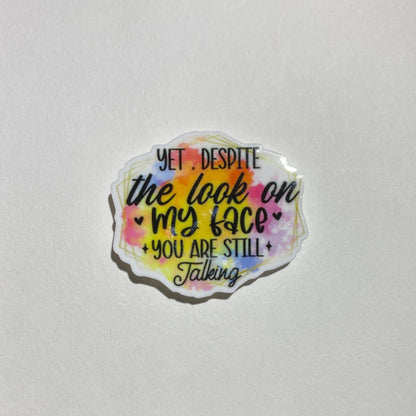 YET, DESPITE
the look on
my face
YOU ARE STILL
Talking